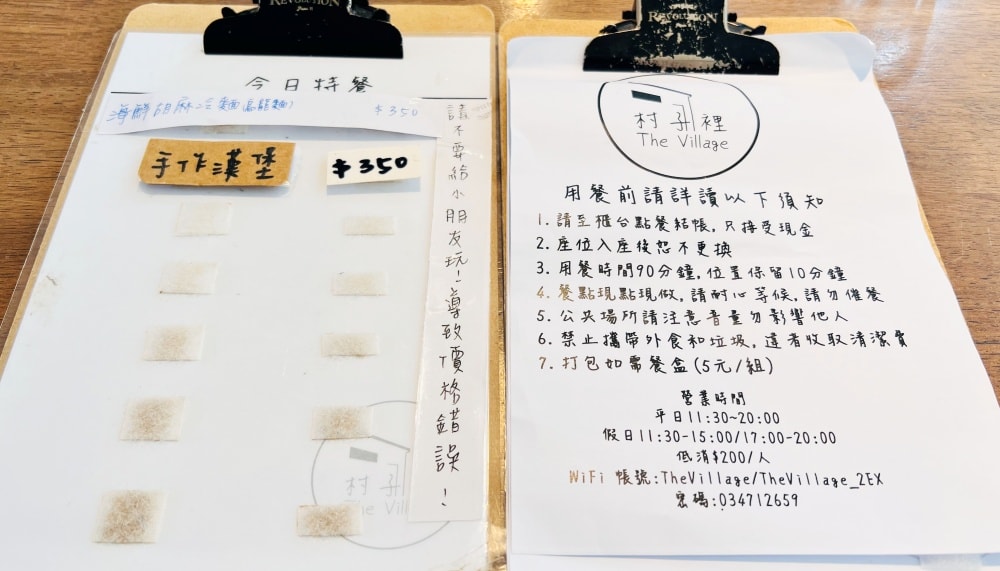 REVOLUTION
今日特餐
海鮮胡麻冷麵(烏龍麵) $350
手作漢堡 $350
請不要給小朋友玩!導致價格錯誤!
村子裡
The Village
REVOLUTION
村子裡
The Village
用餐前請詳讀以下須知
1. 請至櫃台點餐結帳,只接受現金
2. 座位入座後恕不更換
3. 用餐時間90分鐘,位置保留10分鐘
4. 餐點現點現做,請耐心等候,請勿催餐
5. 公共場所請注意音量勿影響他人
6. 禁止攜帶外食和垃圾,違者收取清潔費
7. 打包如需餐盒(5元/組)
營業時間
平日11:30~20:00
假日11:30-15:00/17:00-20:00
低消$200/人
WiFi 帳號:TheVillage/TheVillage_2EX
密碼:034712659